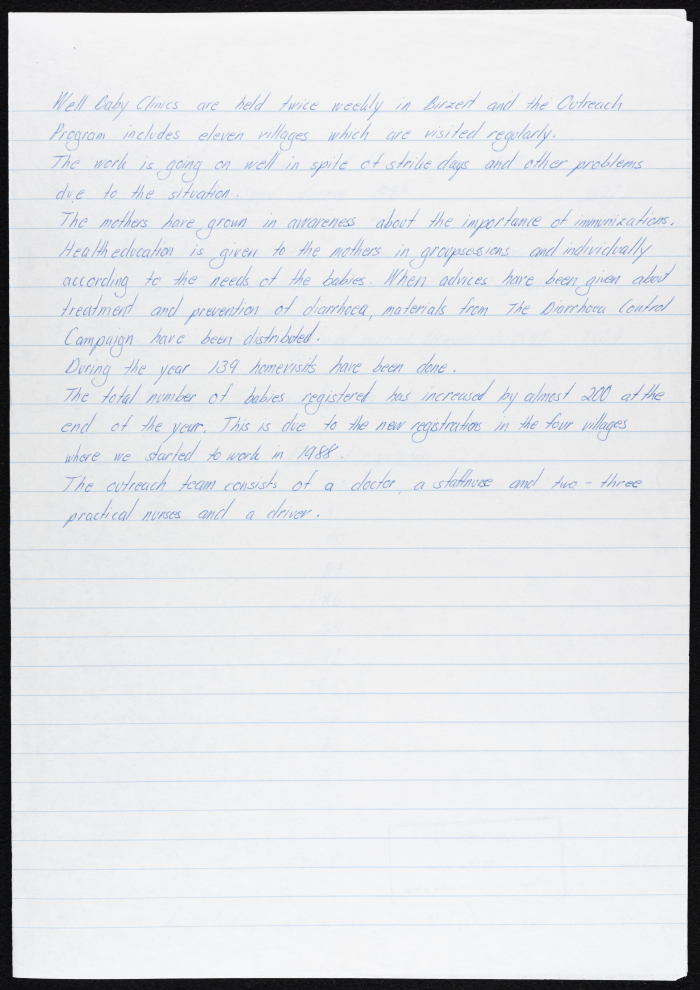 Well Baby Clinics are held twice weekly in Birzert and the Outreach
Program includes eleven villages which are visited regularly.
The work is going on well in spite of strike days and other problems
due to the situation.
The mothers have grown in awareness about the importance of immunizations.
Healtheducation is given to the mothers in groupsessions and individually
according to the needs of the babies. When advices have been given about
treatment and prevention of diarrhoea, materials from The Diarrhoea Control
Campaign have been distributed.
During the year 139 homevisits have been done.
The total number of babies registered has increased by almost 200 at the
end of the year. This is due to the new registrations in the four villages
where we started to work in 1988.
The outreach team consists of a doctor, a staffnurse and two - three
practical nurses and a driver.